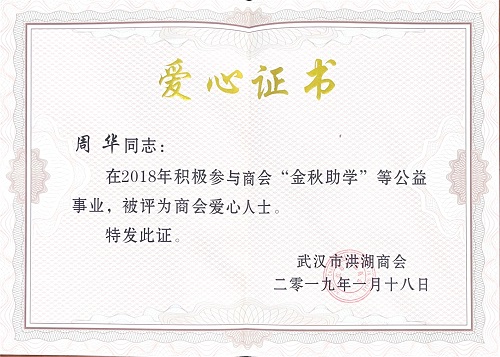 爱心证书
周华同志：
在2018年积极参与商会“金秋助学”等公益
事业，被评为商会爱心人士。
特发此证。
武汉市洪湖商会
二零一九年一月十八日